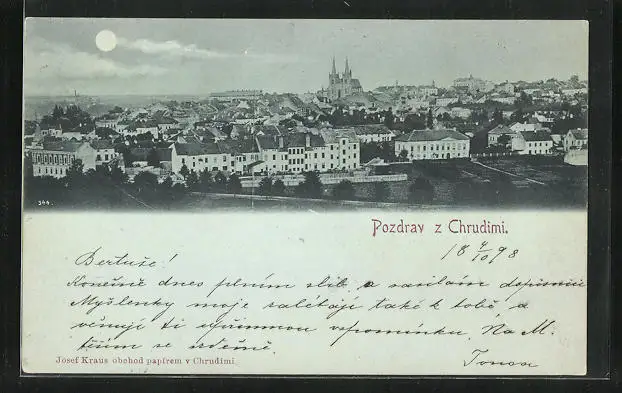 344.
Pozdrav z Chrudimi.
18 4/10 98
Bertuše!
Konečně dnes plním slib a zasílám dopisnici
Myšlenky moje zalétají také k tobě, a
věnují ti upřímnou vzpomínku. Na M.
těším se srdečně.
Josef Kraus obchod papírem v Chrudimi.